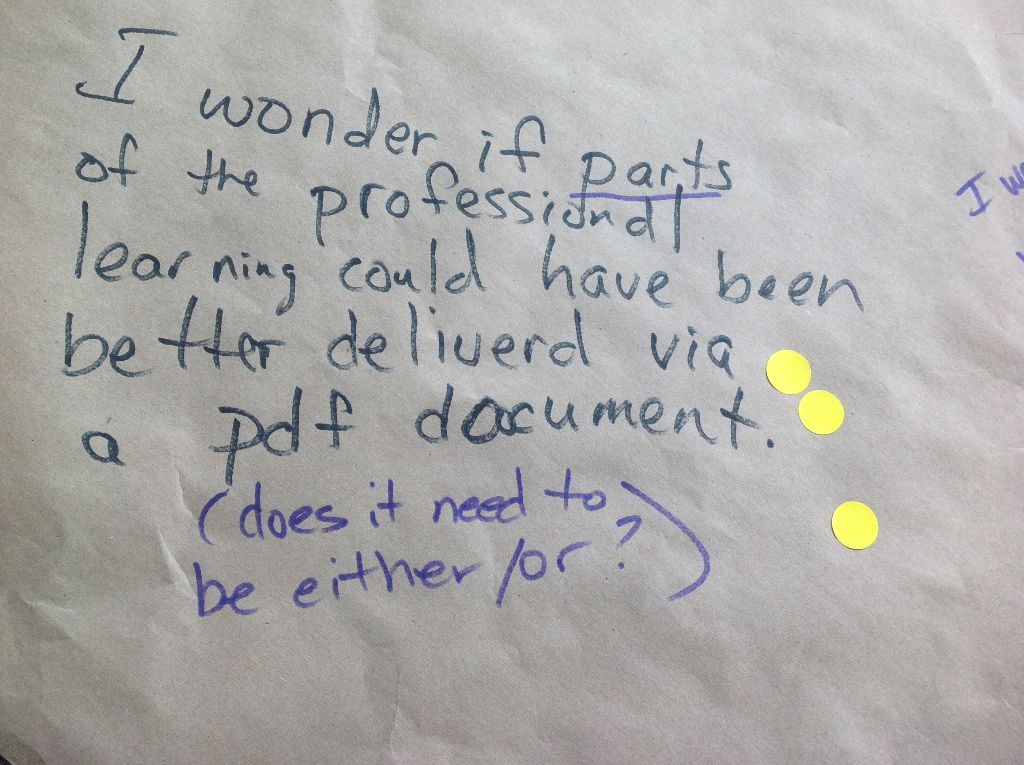 I wonder if parts
of the professional
learning could have been
better deliverd via
a pdf document.
(does it need to
be either/or?)
I